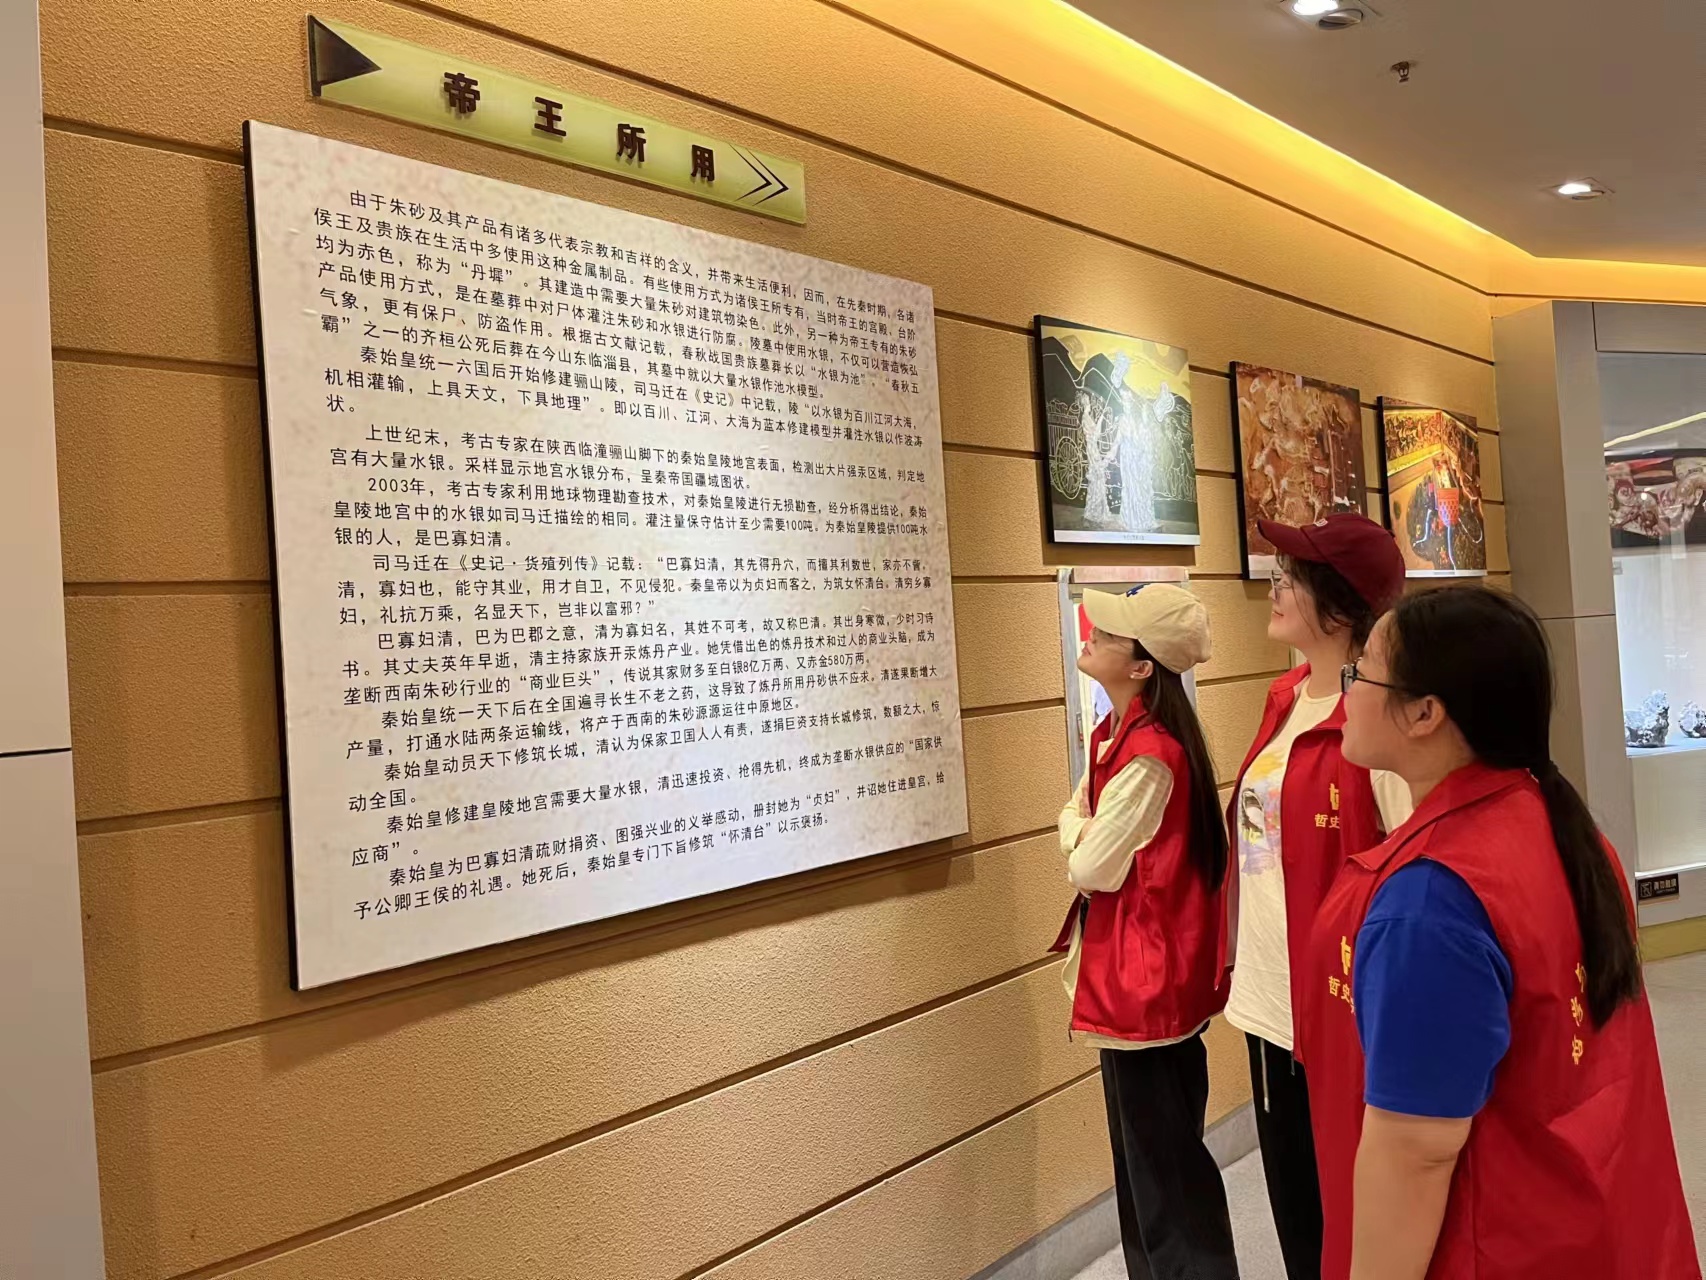 帝王所用
由于朱砂及其产品有诸多代表宗教和吉祥的含义，并带来生活便利，因而，在先秦时期，各诸
侯王及贵族在生活中多使用这种金属制品。有些使用方式为诸侯王所专有，当时帝王的宫殿，台阶
均为赤色，称为“丹墀”。其建造中需要大量朱砂对建筑物染色。此外，另一种为帝王专有的朱砂
产品使用方式，是在墓葬中对尸体灌注朱砂和水银进行防腐。陵墓中使用水银，不仅可以营造恢弘
气象，更有保尸、防盗作用。根据古文献记载，春秋战国贵族墓葬长以“水银为池”。“春秋五
霸”之一的齐桓公死后葬在今山东临淄县，其墓中就以大量水银作池水模型。
秦始皇统一六国后开始修建骊山陵，司马迁在《史记》中记载，陵“以水银为百川江河大海，
机相灌输，上具天文，下具地理”。即以百川、江河、大海为蓝本修建模型并灌注水银以作波涛
状。
上世纪末，考古专家在陕西临潼骊山脚下的秦始皇陵地宫表面，检测出大片强汞区域，判定地
宫有大量水银。采样显示地宫水银分布，呈秦帝国疆域图状。
2003年，考古专家利用地球物理勘查技术，对秦始皇陵进行无损勘查，经分析得出结论，秦始
皇陵地宫中的水银如司马迁描绘的相同。灌注量保守估计至少需要100吨。为秦始皇陵提供100吨水
银的人，是巴寡妇清。
司马迁在《史记·货殖列传》记载：“巴寡妇清，其先得丹穴，而擅其利数世，家亦不訾。
清，寡妇也，能守其业，用才自卫，不见侵犯。秦皇帝以为贞妇而客之，为筑女怀清台。清穷乡寡
妇，礼抗万乘，名显天下，岂非以富邪？”
巴寡妇清，巴为巴郡之意，清为寡妇名，其姓不可考，故又称巴清。其出身寒微，少时习诗
书。其丈夫英年早逝，清主持家族开汞炼丹产业。她凭借出色的炼丹技术和过人的商业头脑，成为
垄断西南朱砂行业的“商业巨头”，传说其家财多至白银8亿万两、又赤金580万两。
秦始皇统一天下后在全国遍寻长生不老之药，这导致了炼丹所用丹砂供不应求。清遂果断增大
产量，打通水陆两条运输线，将产于西南的朱砂源源运往中原地区。
秦始皇动员天下修筑长城，清认为保家卫国人人有责，遂捐巨资支持长城修筑，数额之大，惊
动全国。
秦始皇修建皇陵地宫需要大量水银，清迅速投资、抢得先机，终成为垄断水银供应的“国家供
应商”。
秦始皇为巴寡妇清疏财捐资、图强兴业的义举感动，册封她为“贞妇”，并诏她住进皇宫，给
予公卿王侯的礼遇。她死后，秦始皇专门下旨修筑“怀清台”以示褒扬。
哲史
哲史